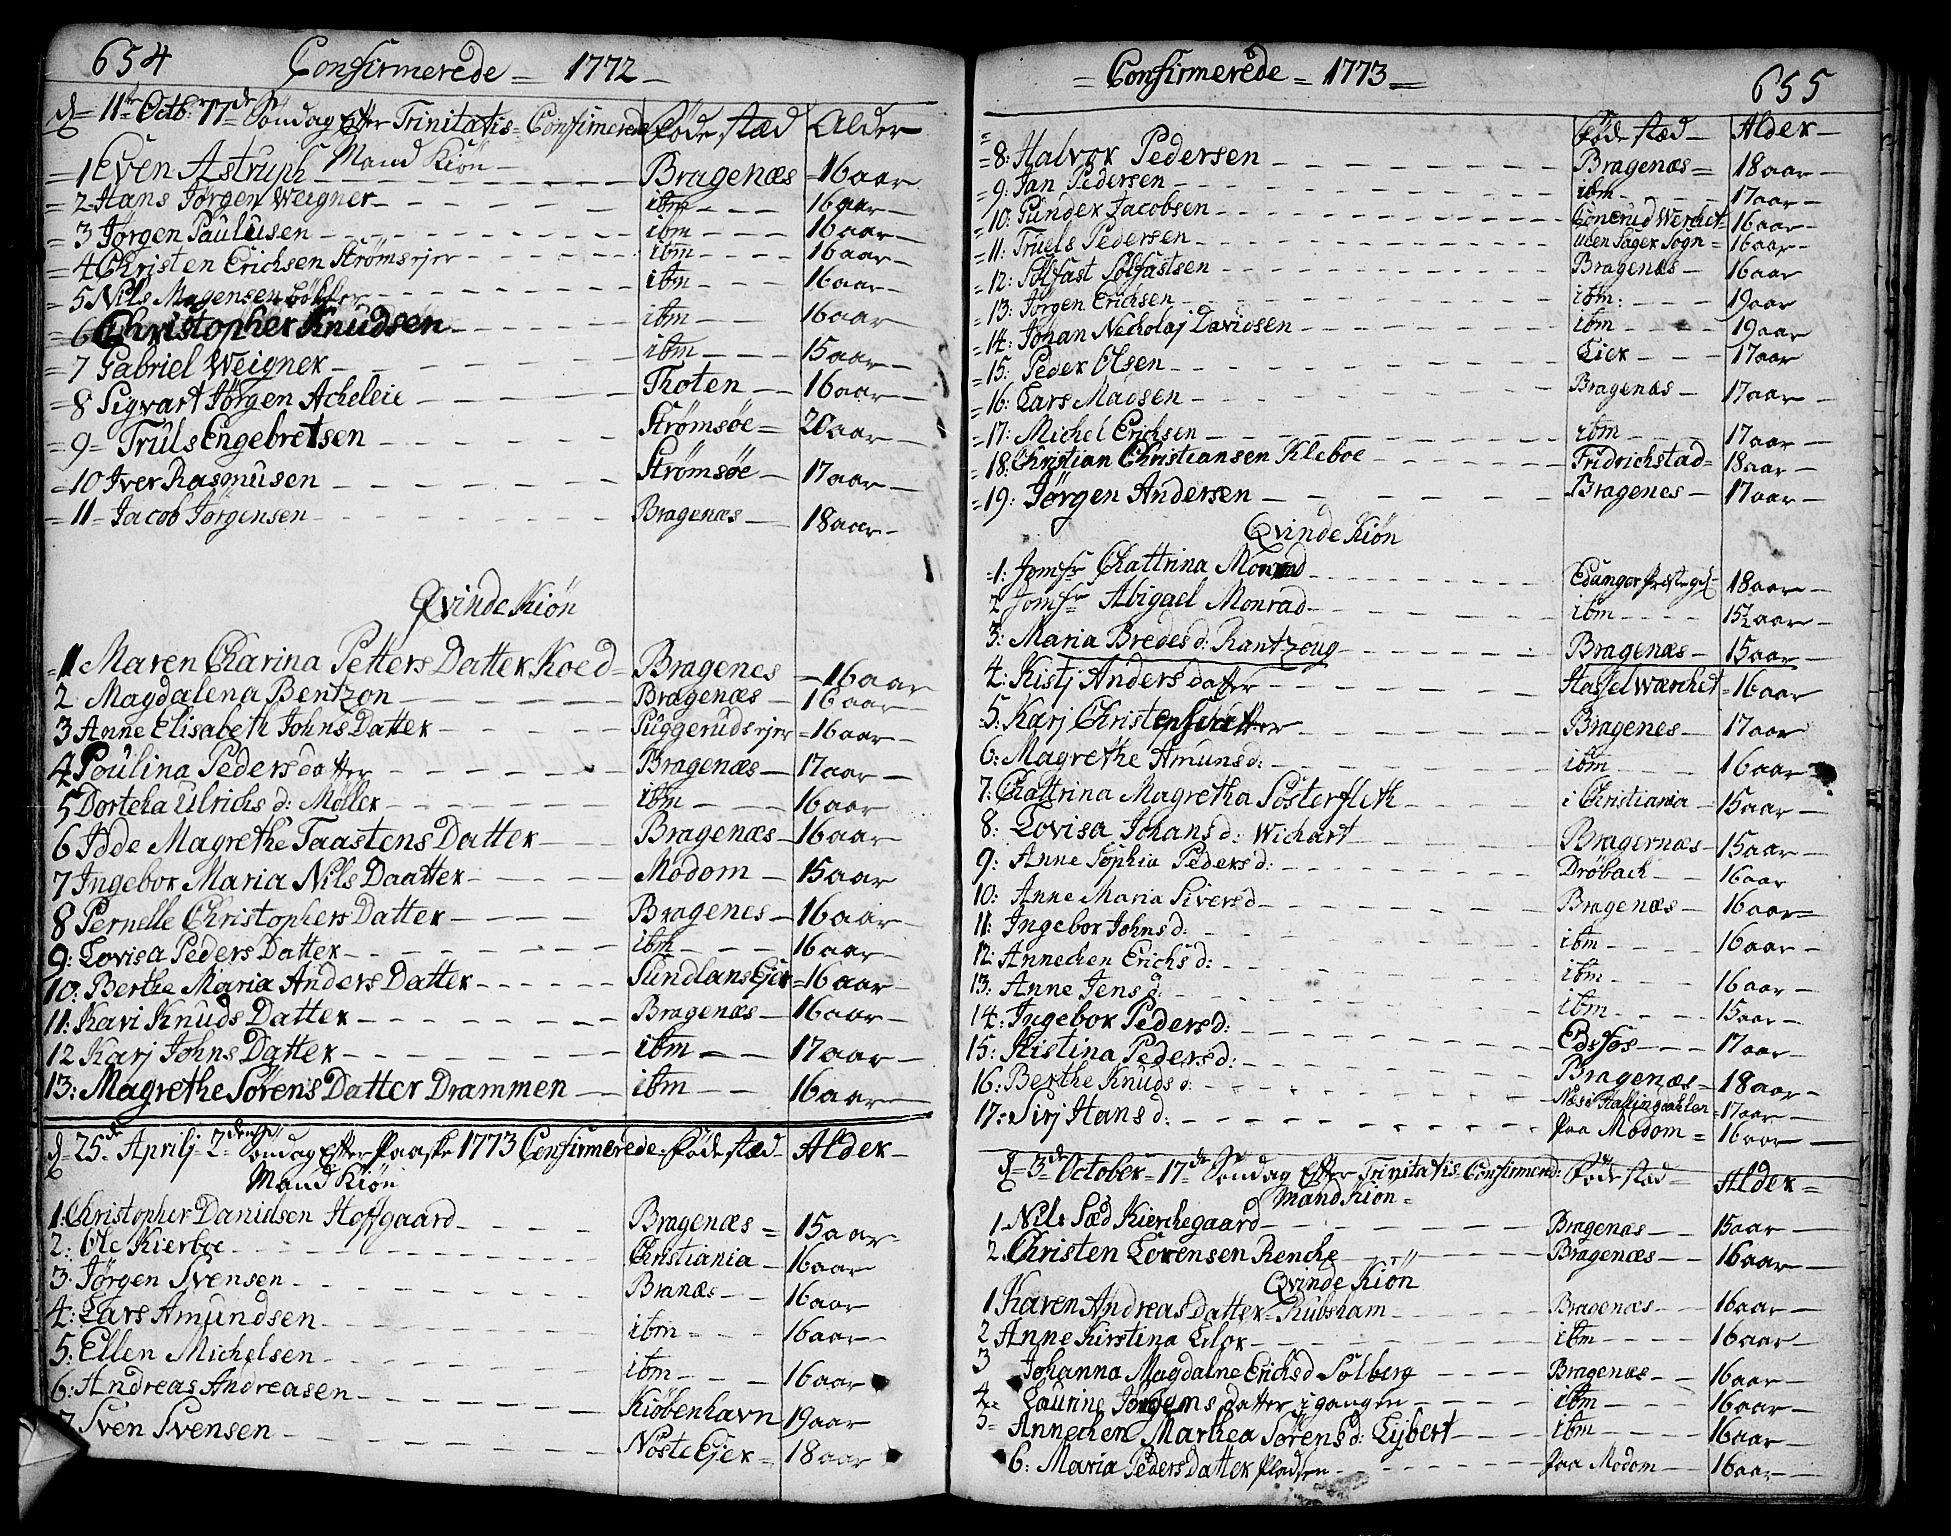 654 Confirmerede = 1772
d = 11te Octb: 17de Søndag Efter Trinitatis = Confirmerede Føde stæd Alder
Mand Kiön
1 Even Astruph Bragenæs 16 aar
2 Hans Jørgen Weigner ibm 16 aar
3 Jørgen Paulusen ibm 16 aar
4 Christen Erichsen Strømsejer ibm 16 aar
5 Nils Magensen Bøhler ibm 16 aar
6 Christopher Knudsen ibm 16 aar
7 Gabriel Weigner ibm 15 aar
8 Sigvart Jørgen Acheleie Thoten 16 aar
9 Truls Engebretsen Strømsøe 20 aar
10 Iver Rasmusen Strømsøe 17 aar
11 Jacob Jørgensen Bragenæs 18 aar
Qvinde Kiön
1 Maren Charina Petters Datter Koed Bragenes 16 aar
2 Magdalena Bentzon Bragenæs 16 aar
3 Anne Elisabeth Johns Datter Puggerudsejer 16 aar
4 Poulina Peders datter Bragenæs 17 aar
5 Dorteha Ulrichs d: Møller ibm 16 aar
6 Idde Magrethe Taastens Datter Bragenæs 16 aar
7 Ingebor Maria Nils Daatter Modom 15 aar
8 Pernelle Christophers Datter Bragenes 16 aar
9: Lovisa Peders Datter ibm 16 aar
10: Berthe Maria Anders Datter Sundlans Ejer 16 aar
11: Kari Knuds Datter Bragenæs 16 aar
12 Karj Johns Datter ibm 17 aar
13: Magrethe Sørens Datter Drammen ibm 16 aar
d = 25de Aprilj 2den Søndag Efter Paaske 1773 Confirmerede Føde stæd Alder
Mand Kiön
1: Christopher Danielsen Hoffgaard Bragenæs 15 aar
2: Ole Kierboe Christiania 16 aar
3: Jørgen Svensen Branæs 16 aar
4: Lars Amundsen ibm 16 aar
5: Ellen Michelsen ibm 16 aar
6: Andreas Andreasen Kiöbenhavn 19 aar
7 Sven Svensen Nöste Ejer 18 aar
= Confirmerede = 1773 = 655
Føde stæd Alder
8: Halvor Pedersen Bragenæs 18 aar
9: Jan Pedersen ibm 17 aar
10: Gunder Jacobsen 16 aar
11: Truels Pedersen Sogn 16 aar
12: Solfast Solfastsen Bragenæs 16 aar
13: Jørgen Erichsen ibm: 19 aar
14: Johan Nicholaj Davidsen ibm 19 aar
15: Peder Olsen Lier 17 aar
16: Lars Madsen Bragenæs 17 aar
17: Michel Erichsen ibm 17 aar
18: Christian Christiansen Kleboe Fridrichstad 18 aar
19: Jørgen Andersen Bragenes 17 aar
Qvinde Kiön
1: Jomfr Chattrina Monrad Edanger Præstegd 18 aar
2 Jomfr Abigael Monrad ibm 15½ aar
3: Maria Bredes d: Rantzoug Bragenæs 15 aar
4: Kistj Anders datter Hassel Wærchet 16 aar
5: Karj Christens datter Bragenes 17 aar
6: Magrethe Amuns d: ibm 16 aar
7: Chattrina Magretha Sosterfleth i Christiania 15 aar
8: Lovisa Johans d: Wichart Bragernæs 15 aar
9: Anne Sophia Peders d: Dröbach 16 aar
10: Anne Maria Sivers d Bragenæs 16 aar
11: Ingebor Johns d: ibm 16 aar
12: Annechen Erichs d: ibm 16 aar
13: Anne Jens d: ibm 15 aar
14: Ingebor Peders d: Edsfos 17 aar
15: Kistina Peders d: Bragenæs 18 aar
16: Berthe Knuds d: Næs i Hallingdahlen 17 aar
17: Sirj Hans d: Paa Modom 16 aar
d = 3de October = 17de Søndag Efter Trinitatis Confirmered: Føde stæd Alder
Mand Kiön
1 Nils Sæd Kierchegaard Bragenæs 15 aar
2 Christen Lorensen Renche Bragenæs 16 aar
Qvinde Kiön
1 Karen Andreas Datter Rubsham Bragenæs 16 aar
2 Anne Kirstina Eilor ibm 16 aar
3 Johanna Magdalne Erichs d Solberg Bragenæs 16 aar
4 Laurine Jørgens datter i gangen ibm 16 aar
5 Annechen Marthea Sörens d: Lijbert ibm 16 aar
6: Maria Peders Datter Pladsen Paa Modom 16 aar